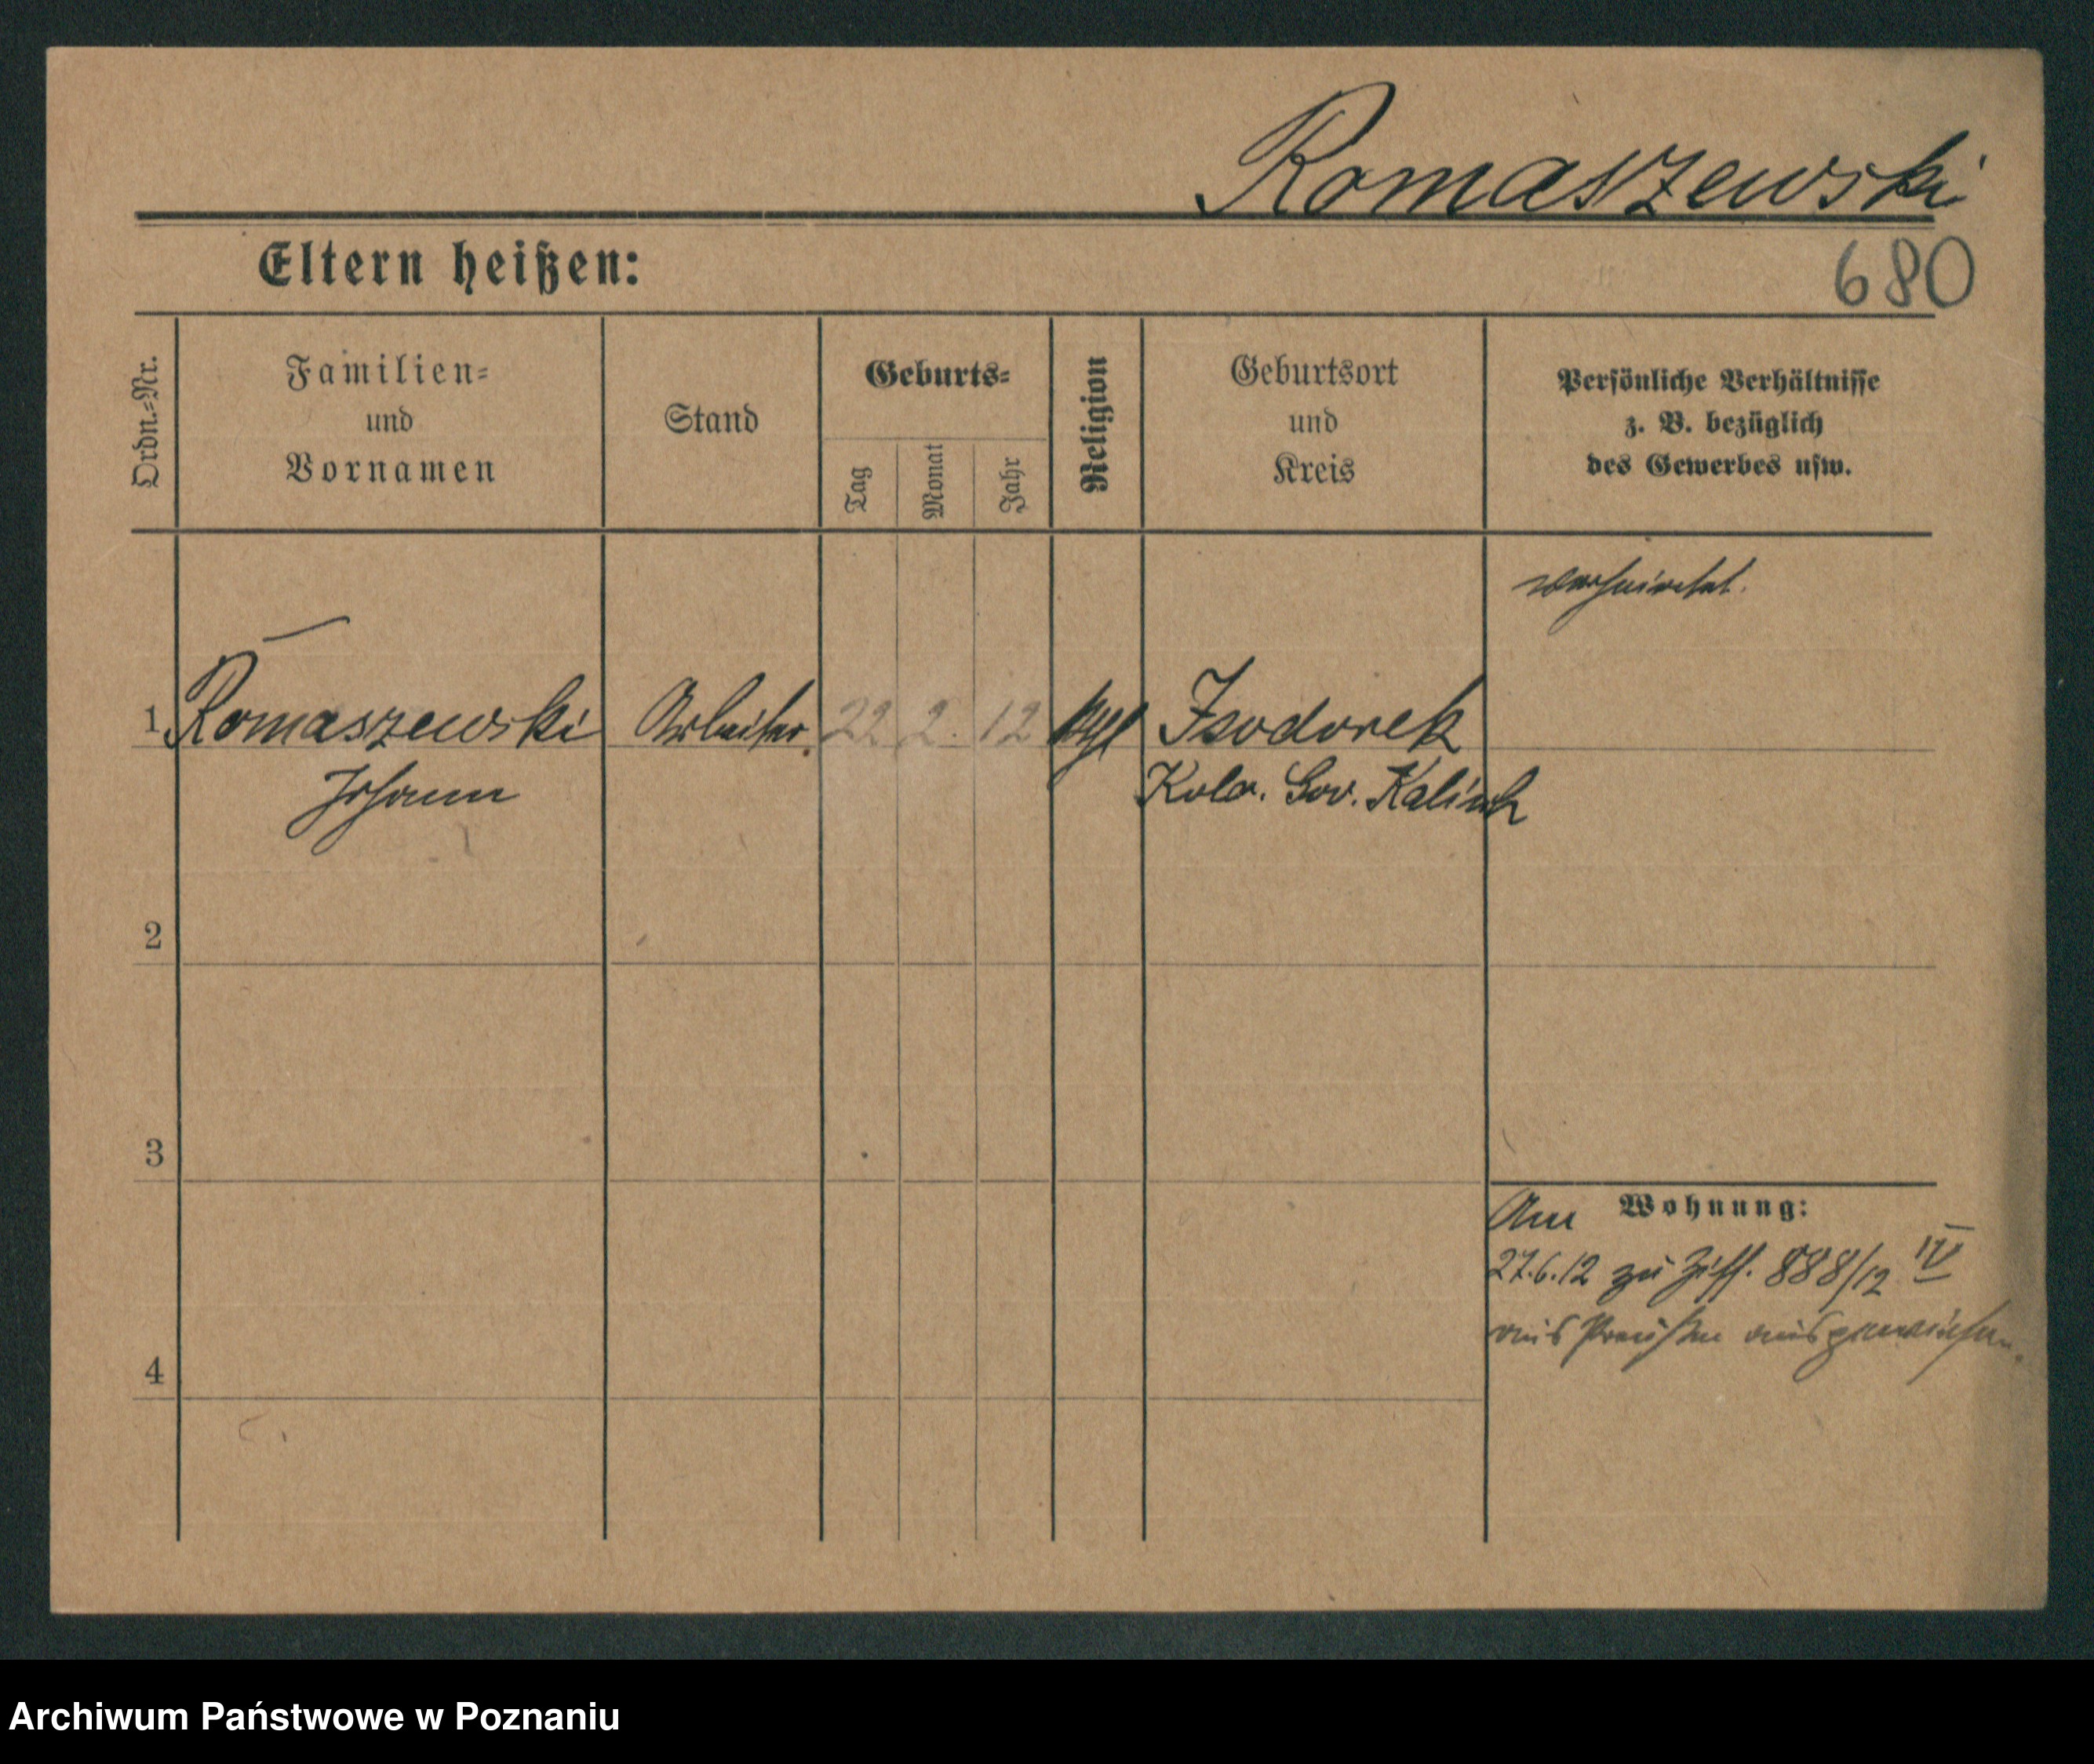 Romaszewski
680
Eltern heißen:
Ordn.-Nr.
Familien-
und
Vornamen
Stand
Geburts-
Tag
Monat
Jahr
Religion
Geburtsort
und
Kreis
Persönliche Verhältnisse
z. B. bezüglich
des Gewerbes usw.
verheiratet.
1 Romaszewski Arbeiter 22 2. 12 Isodorek
Johann Kolo. Gov. Kalisch
2
3
Wohnung:
Am
27.6.12 zu Ziff. 888/12 IV
aus Preußen ausgewiesen.
4
Archiwum Państwowe w Poznaniu